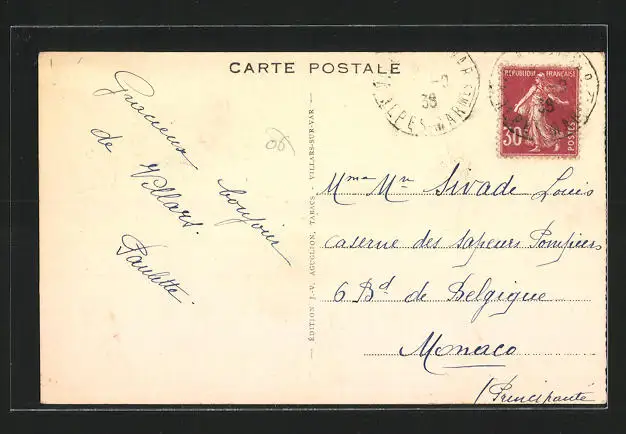 CARTE POSTALE
Gracieux bonjour
de Villars.
Paulette.
06
ÉDITION J.-V. AGUGLION, TABACS - VILLARS-SUR-VAR
VAR
38
ALPES-MARMES
RÉPUBLIQUE FRANÇAISE
30
POSTES
38
Mme Mr Sivade Louis
caserne des sapeurs Pompiers
6 Bd de Belgique
Monaco
(Principauté